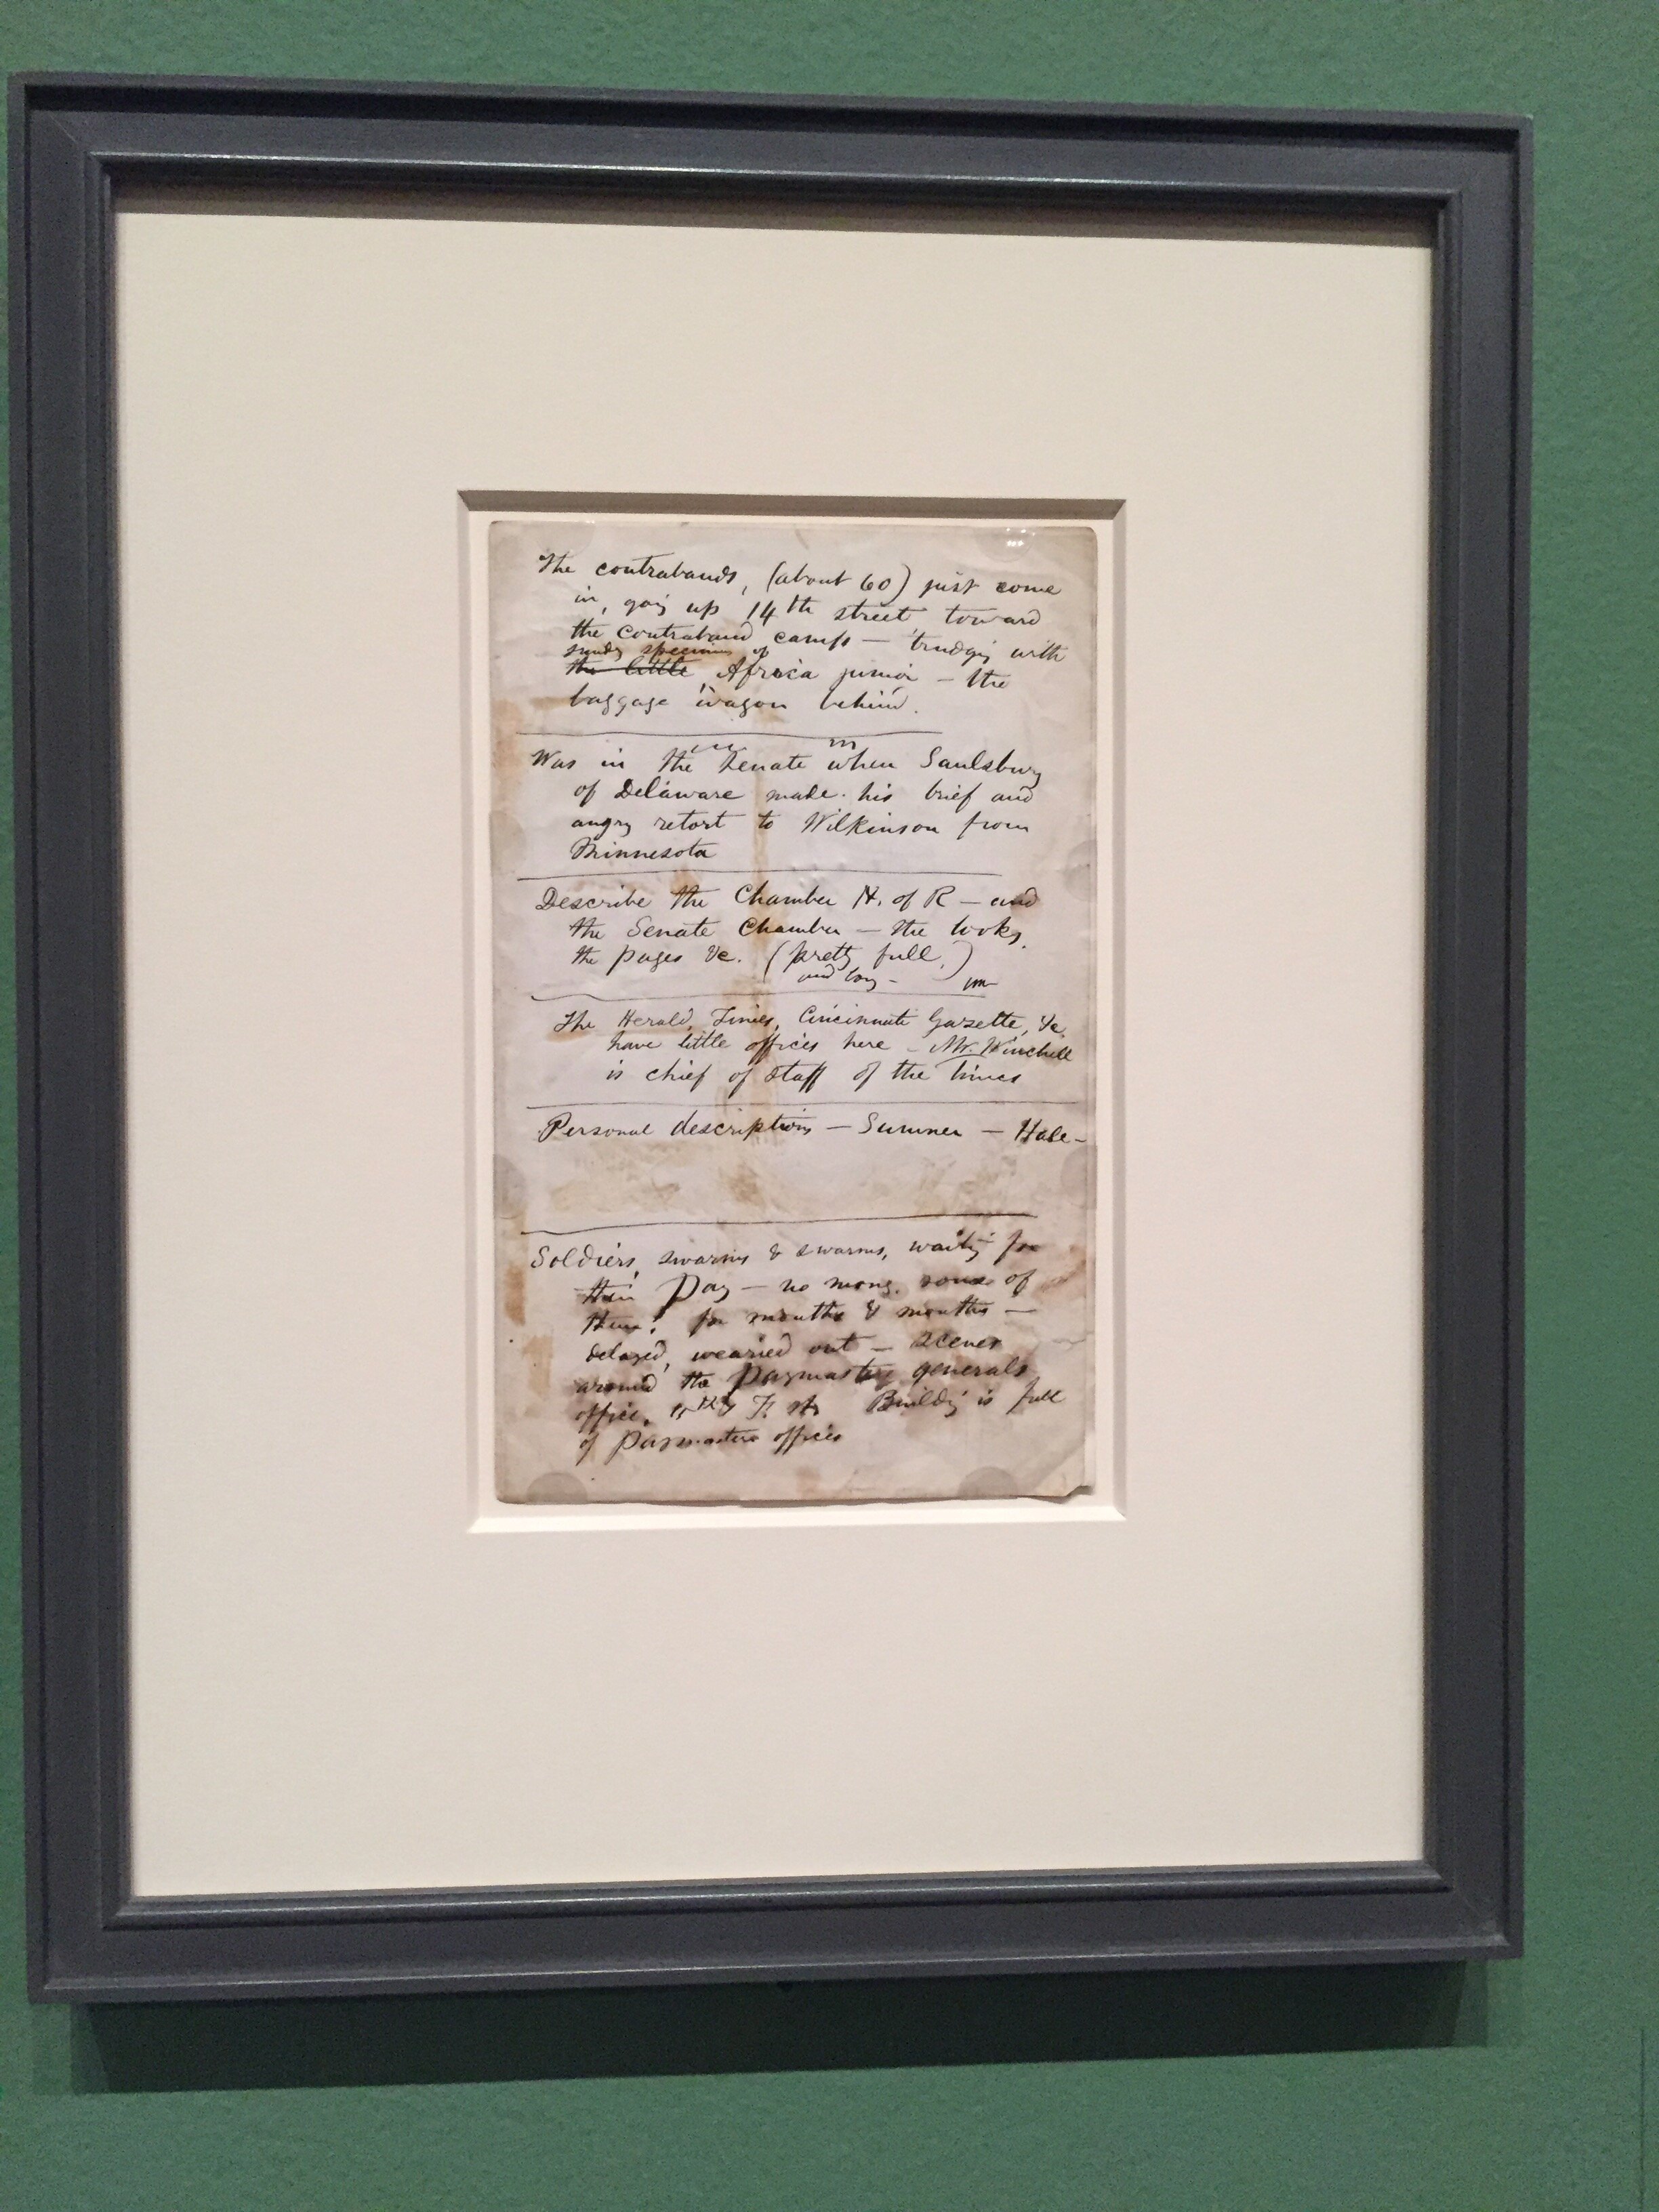 The contrabands, (about 60) just come
in, going up 14th street toward
the contraband camp — trudging with
sundry specimens of
the little Africa junior — the
baggage wagon behind.
Was in the Senate when Saulsbury
of Delaware made his brief and
angry retort to Wilkinson from
Minnesota
Describe the Chamber H. of R — and
the Senate Chamber — the looks,
the pages &c. (pretty full,)
and long —
The Herald, Times, Cincinnati Gazette, &c.
have little offices here — Mr. Winchell
is chief of staff of the Times
Personal descriptions — Sumner — Hale —
Soldiers, swarms & swarms, waiting for
their Pay — no money, some of
them, for months & months —
delayed, wearied out — scenes
around the Paymaster generals
office, 15th & F. st. Building is full
of paymasters offices